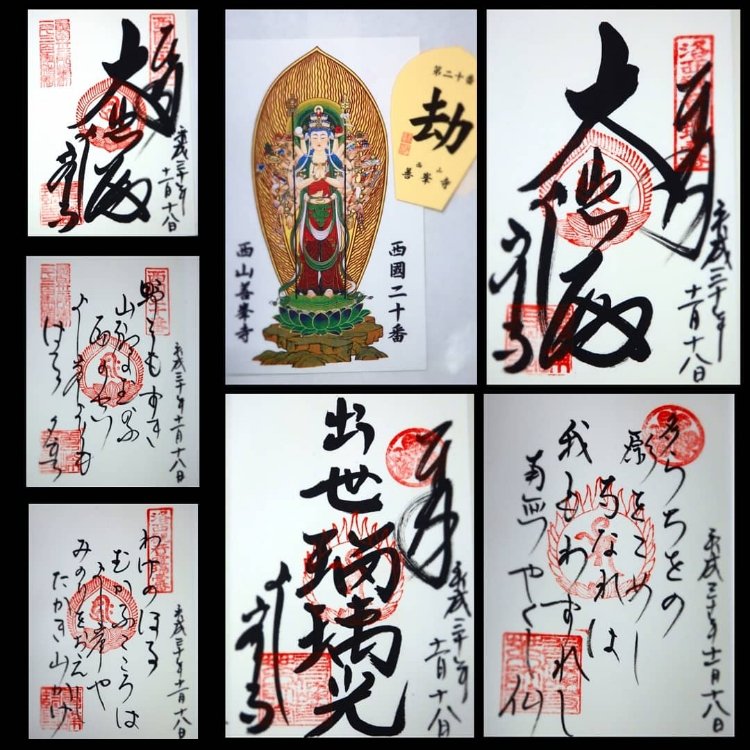 奉拝
大悲殿
よしみね寺
平成三十年十一月十八日
第二十番
劫
西山
善峯寺
西國二十番
西山善峯寺
奉拝
大悲殿
よしみね寺
平成三十年十一月十八日
平成三十年十一月十八日
野をもすぎ
山路にむかふ
雨のそら
よし峯よりも
はるる夕立
平成三十年十一月十八日
わけのぼる
むかふこころは
よし峯や
たかき山かげ
奉拝
出世瑠璃光
よしみね寺
平成三十年十一月十八日
平成三十年十一月十八日
たらちをの
願をこめし
寺なれば
我もわすれじ
南無やくし仏